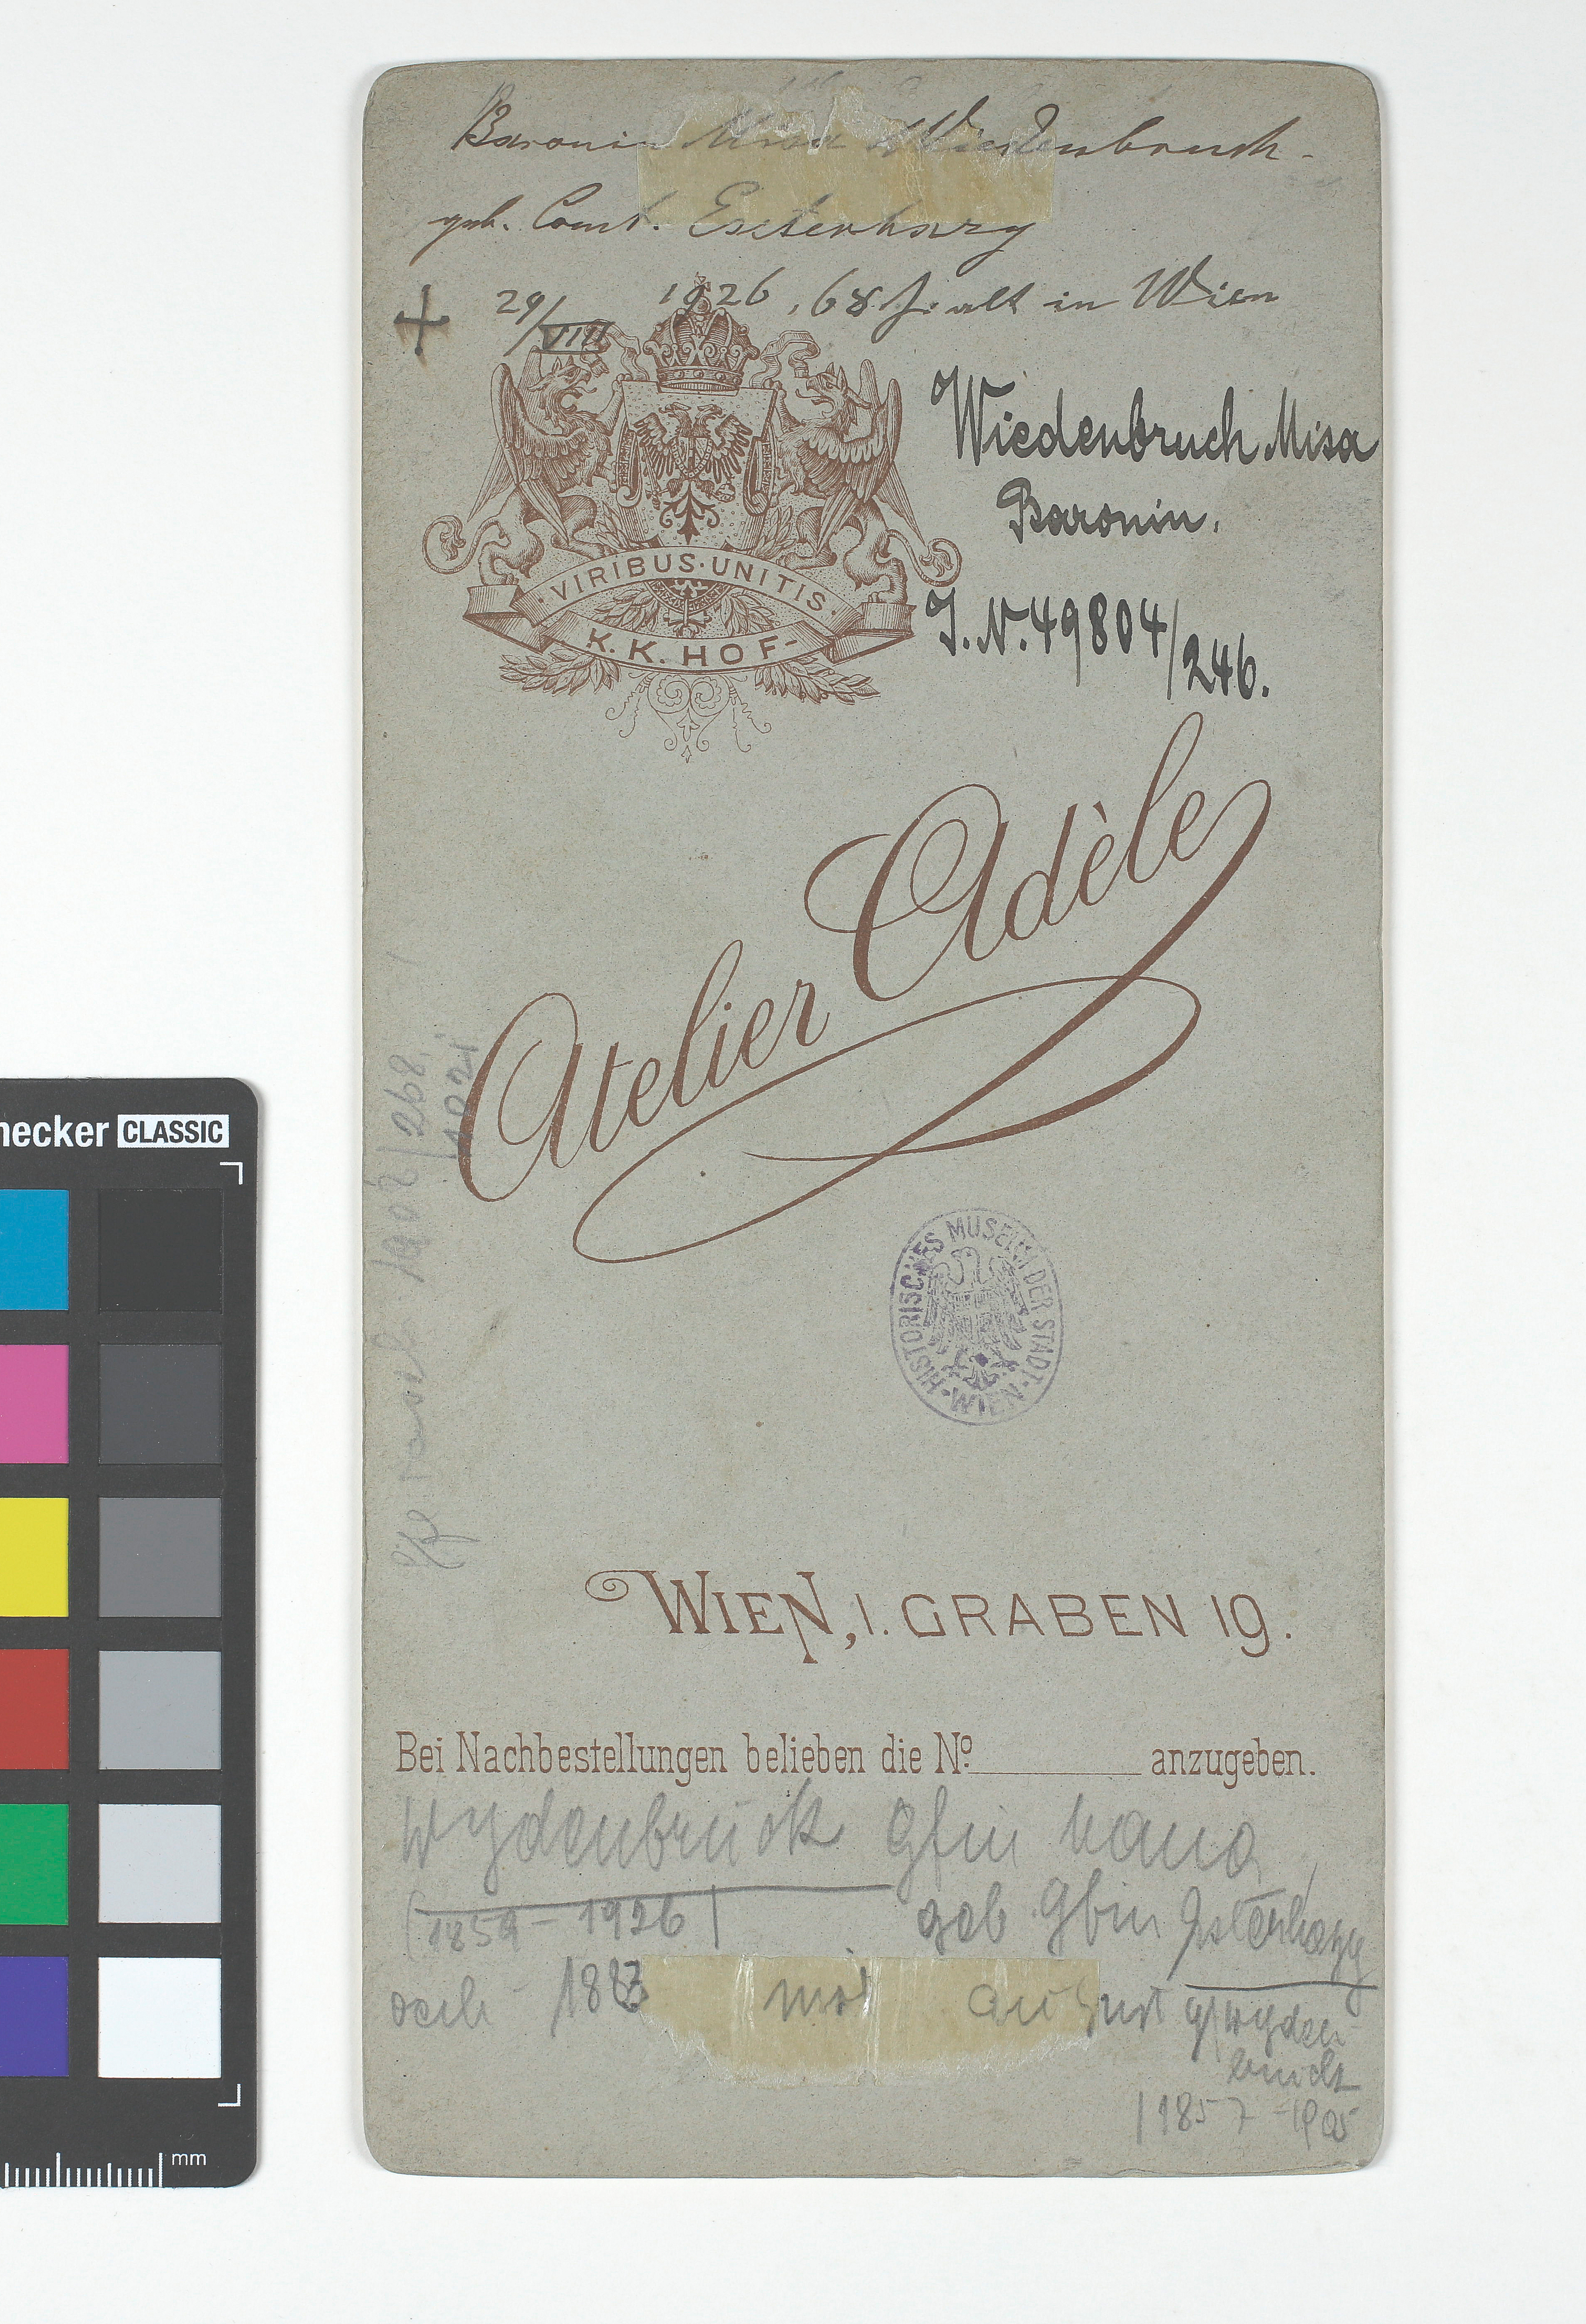 Baronin Misa Wiedenbruch.
geb. Comt. Esterhazy
+ 29/VIII 1926, 68 J. alt in Wien
Wiedenbruch Misa
Baronin.
I.N. 49804/246.
·VIRIBUS·UNITIS·
K.K. HOF-
Atelier Adèle
HISTORISCHES MUSEUM DER STADT · WIEN ·
WIEN, I. GRABEN 19.
Bei Nachbestellungen belieben die Nº anzugeben.
Wydenbruck Gfin
(1859 - 1926) geb Gfin Esterhazy
1883 mit August Gf Wyden-
bruck
1857 - 1905
hecker CLASSIC
mm